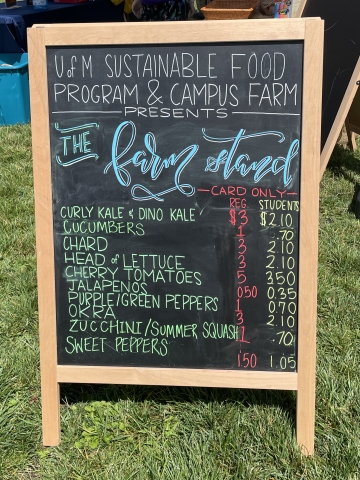 U of M SUSTAINABLE FOOD
PROGRAM & CAMPUS FARM
PRESENTS
THE farm stand
CARD ONLY
REG. STUDENTS
CURLY KALE & DINO KALE $3 $2.10
CUCUMBERS 1 .70
CHARD 3 2.10
HEAD of LETTUCE 3 2.10
CHERRY TOMATOES 5 3.50
JALAPENOS 0.50 0.35
PURPLE/GREEN PEPPERS 1 0.70
OKRA 3 2.10
ZUCCHINI/SUMMER SQUASH 1 .70
SWEET PEPPERS 1.50 1.05